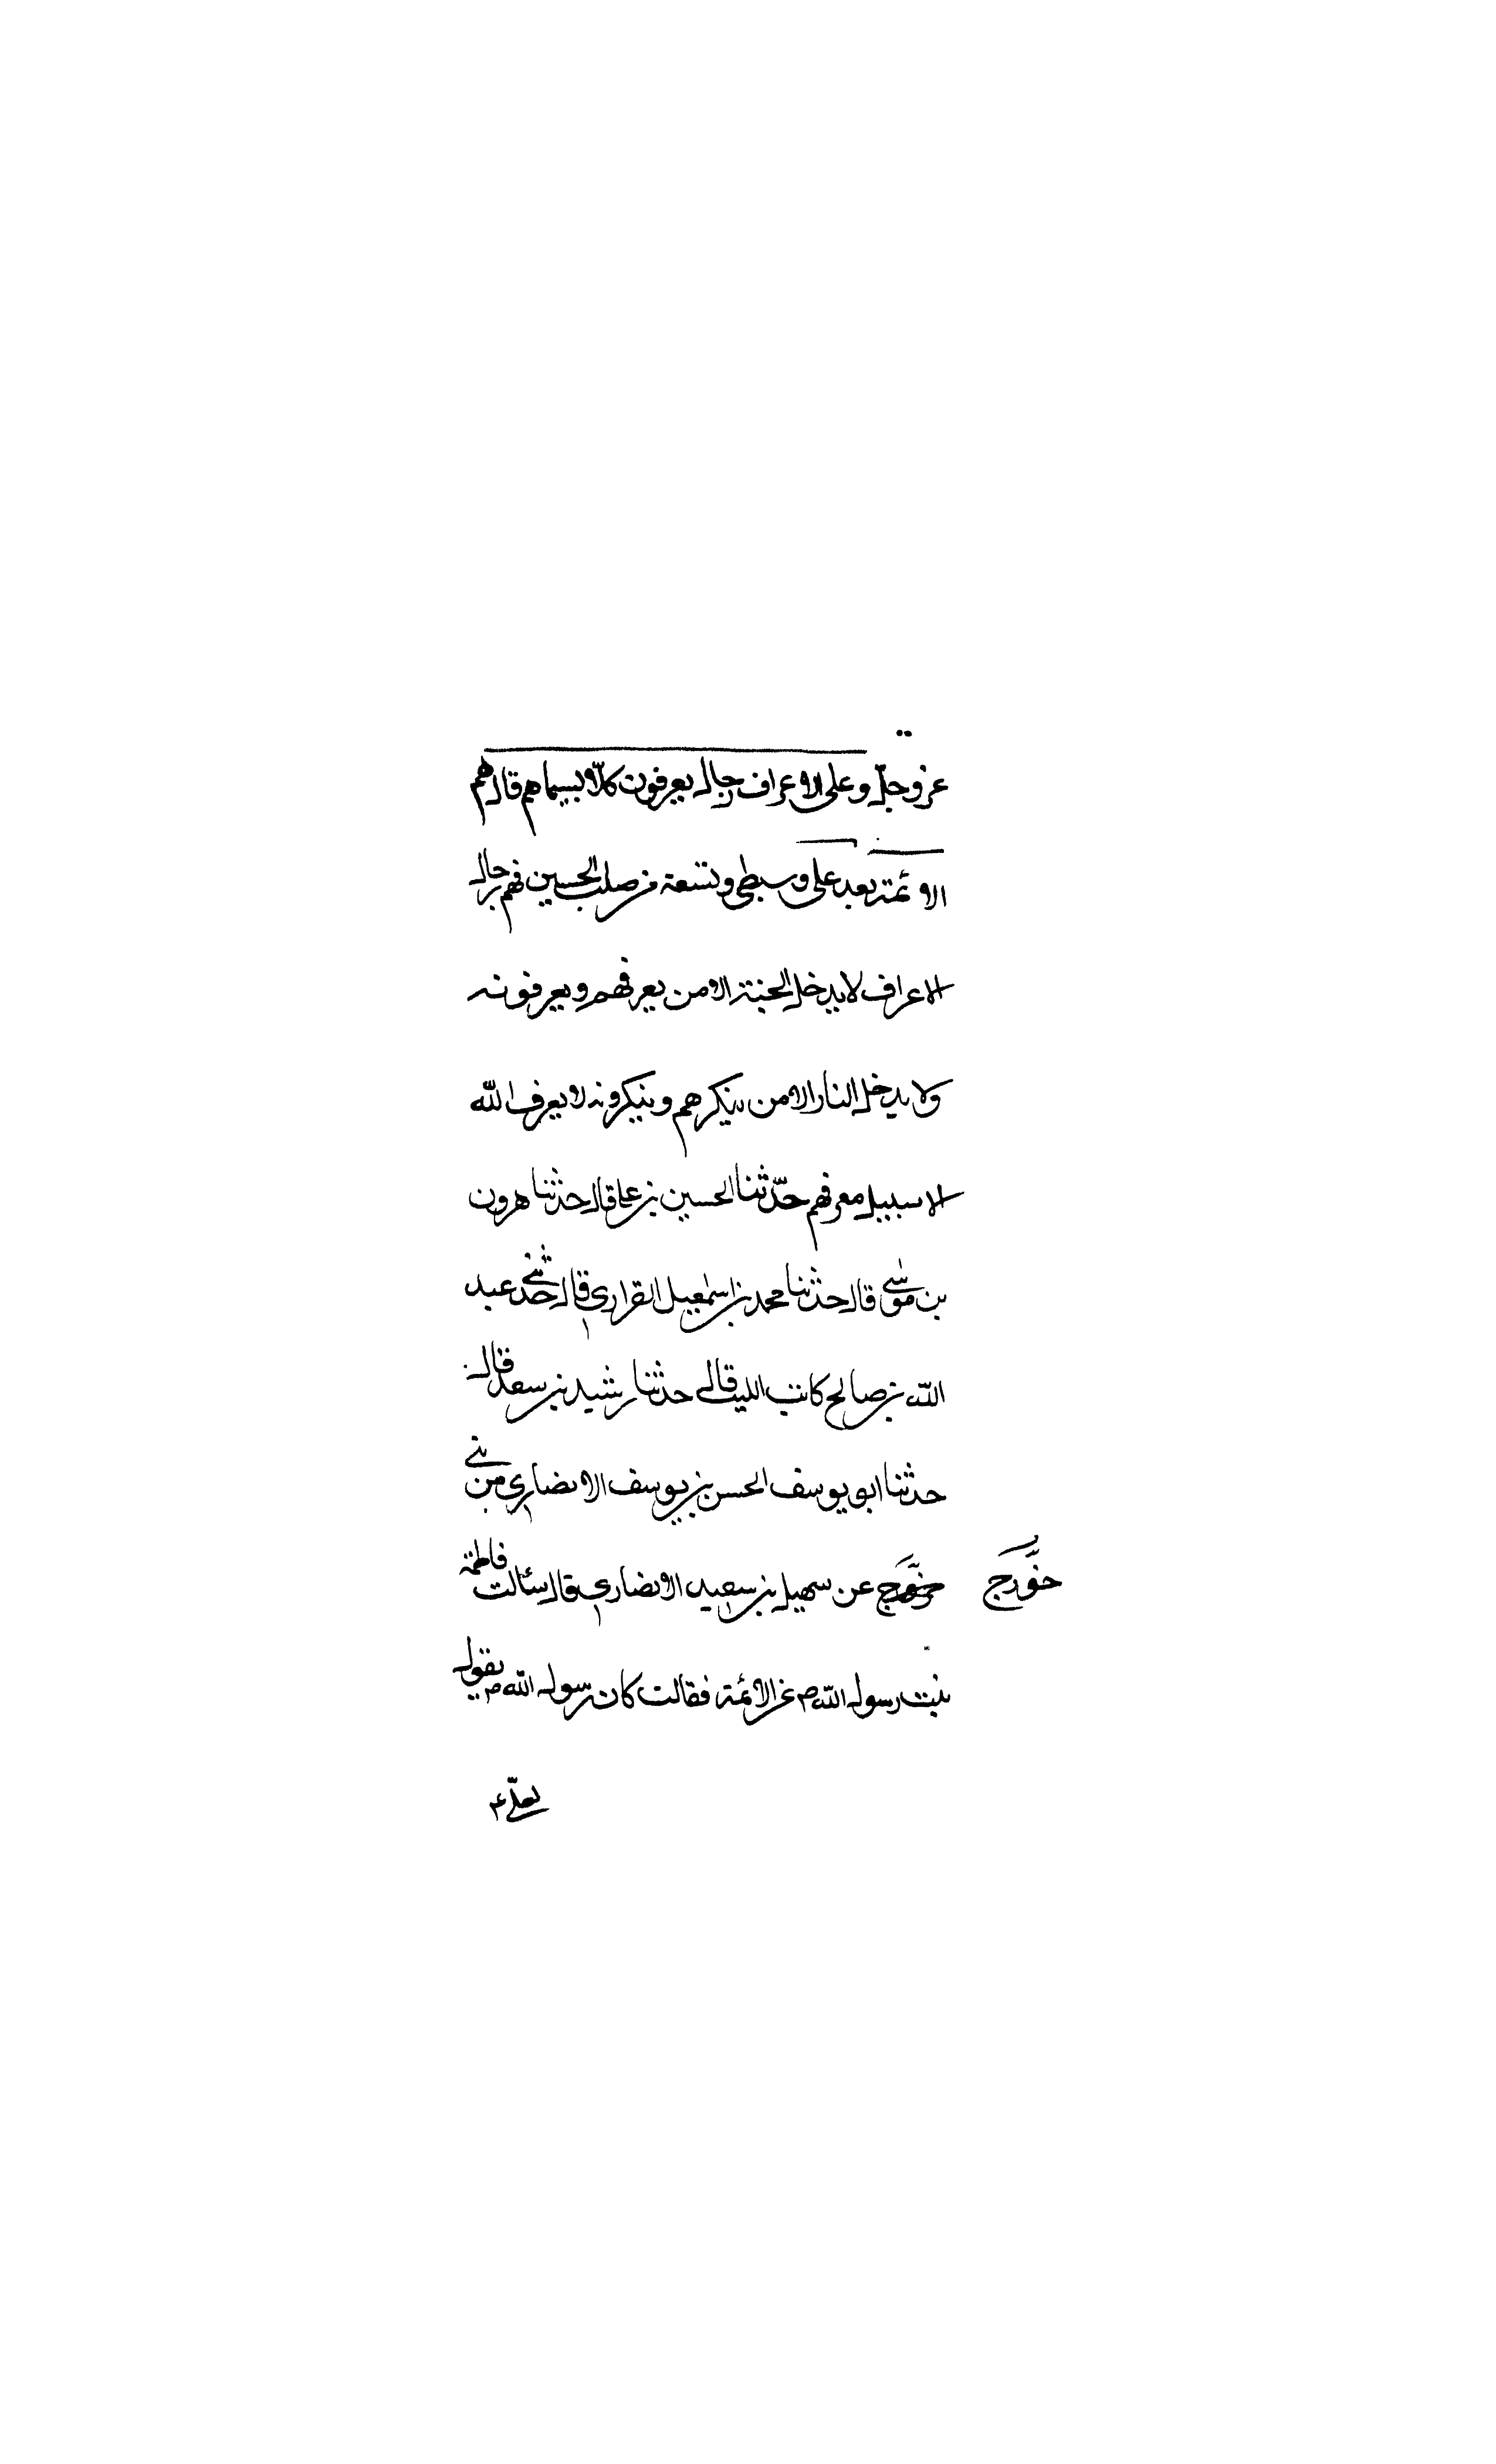 عز وجل وعلى الاعراف رجال يعرفون كلا بسيماهم قال هم
الائمة بعد على وسبطى وتسعة من صلب الحسين فهم رجال
الاعراف لا يدخل الجنة الا من يعرفهم ويعرفونه
ولا يدخل النار الا من ينكرهم وينكرونه لا يعرف الله
الا سبيل معرفهم حدّثنا الحسين بن على قال حدثنا هرون
بن موسى قال حدثنا محمد بن اسمعيل الفزارى قال حدثنى عبد
الله بن صالح كاتب الليث قال حدثنا رشيد بن سعد قال
حدثنا ابو يوسف الحسن بن يوسف الانصارى من بنى
خزرج عن سهيل بن سعيد الانصارى قال سئالت فاطمة
خزرج
بنت رسول الله ص عن الائمة فقالت كان رسول الله ص يقول
لعلىّ ع